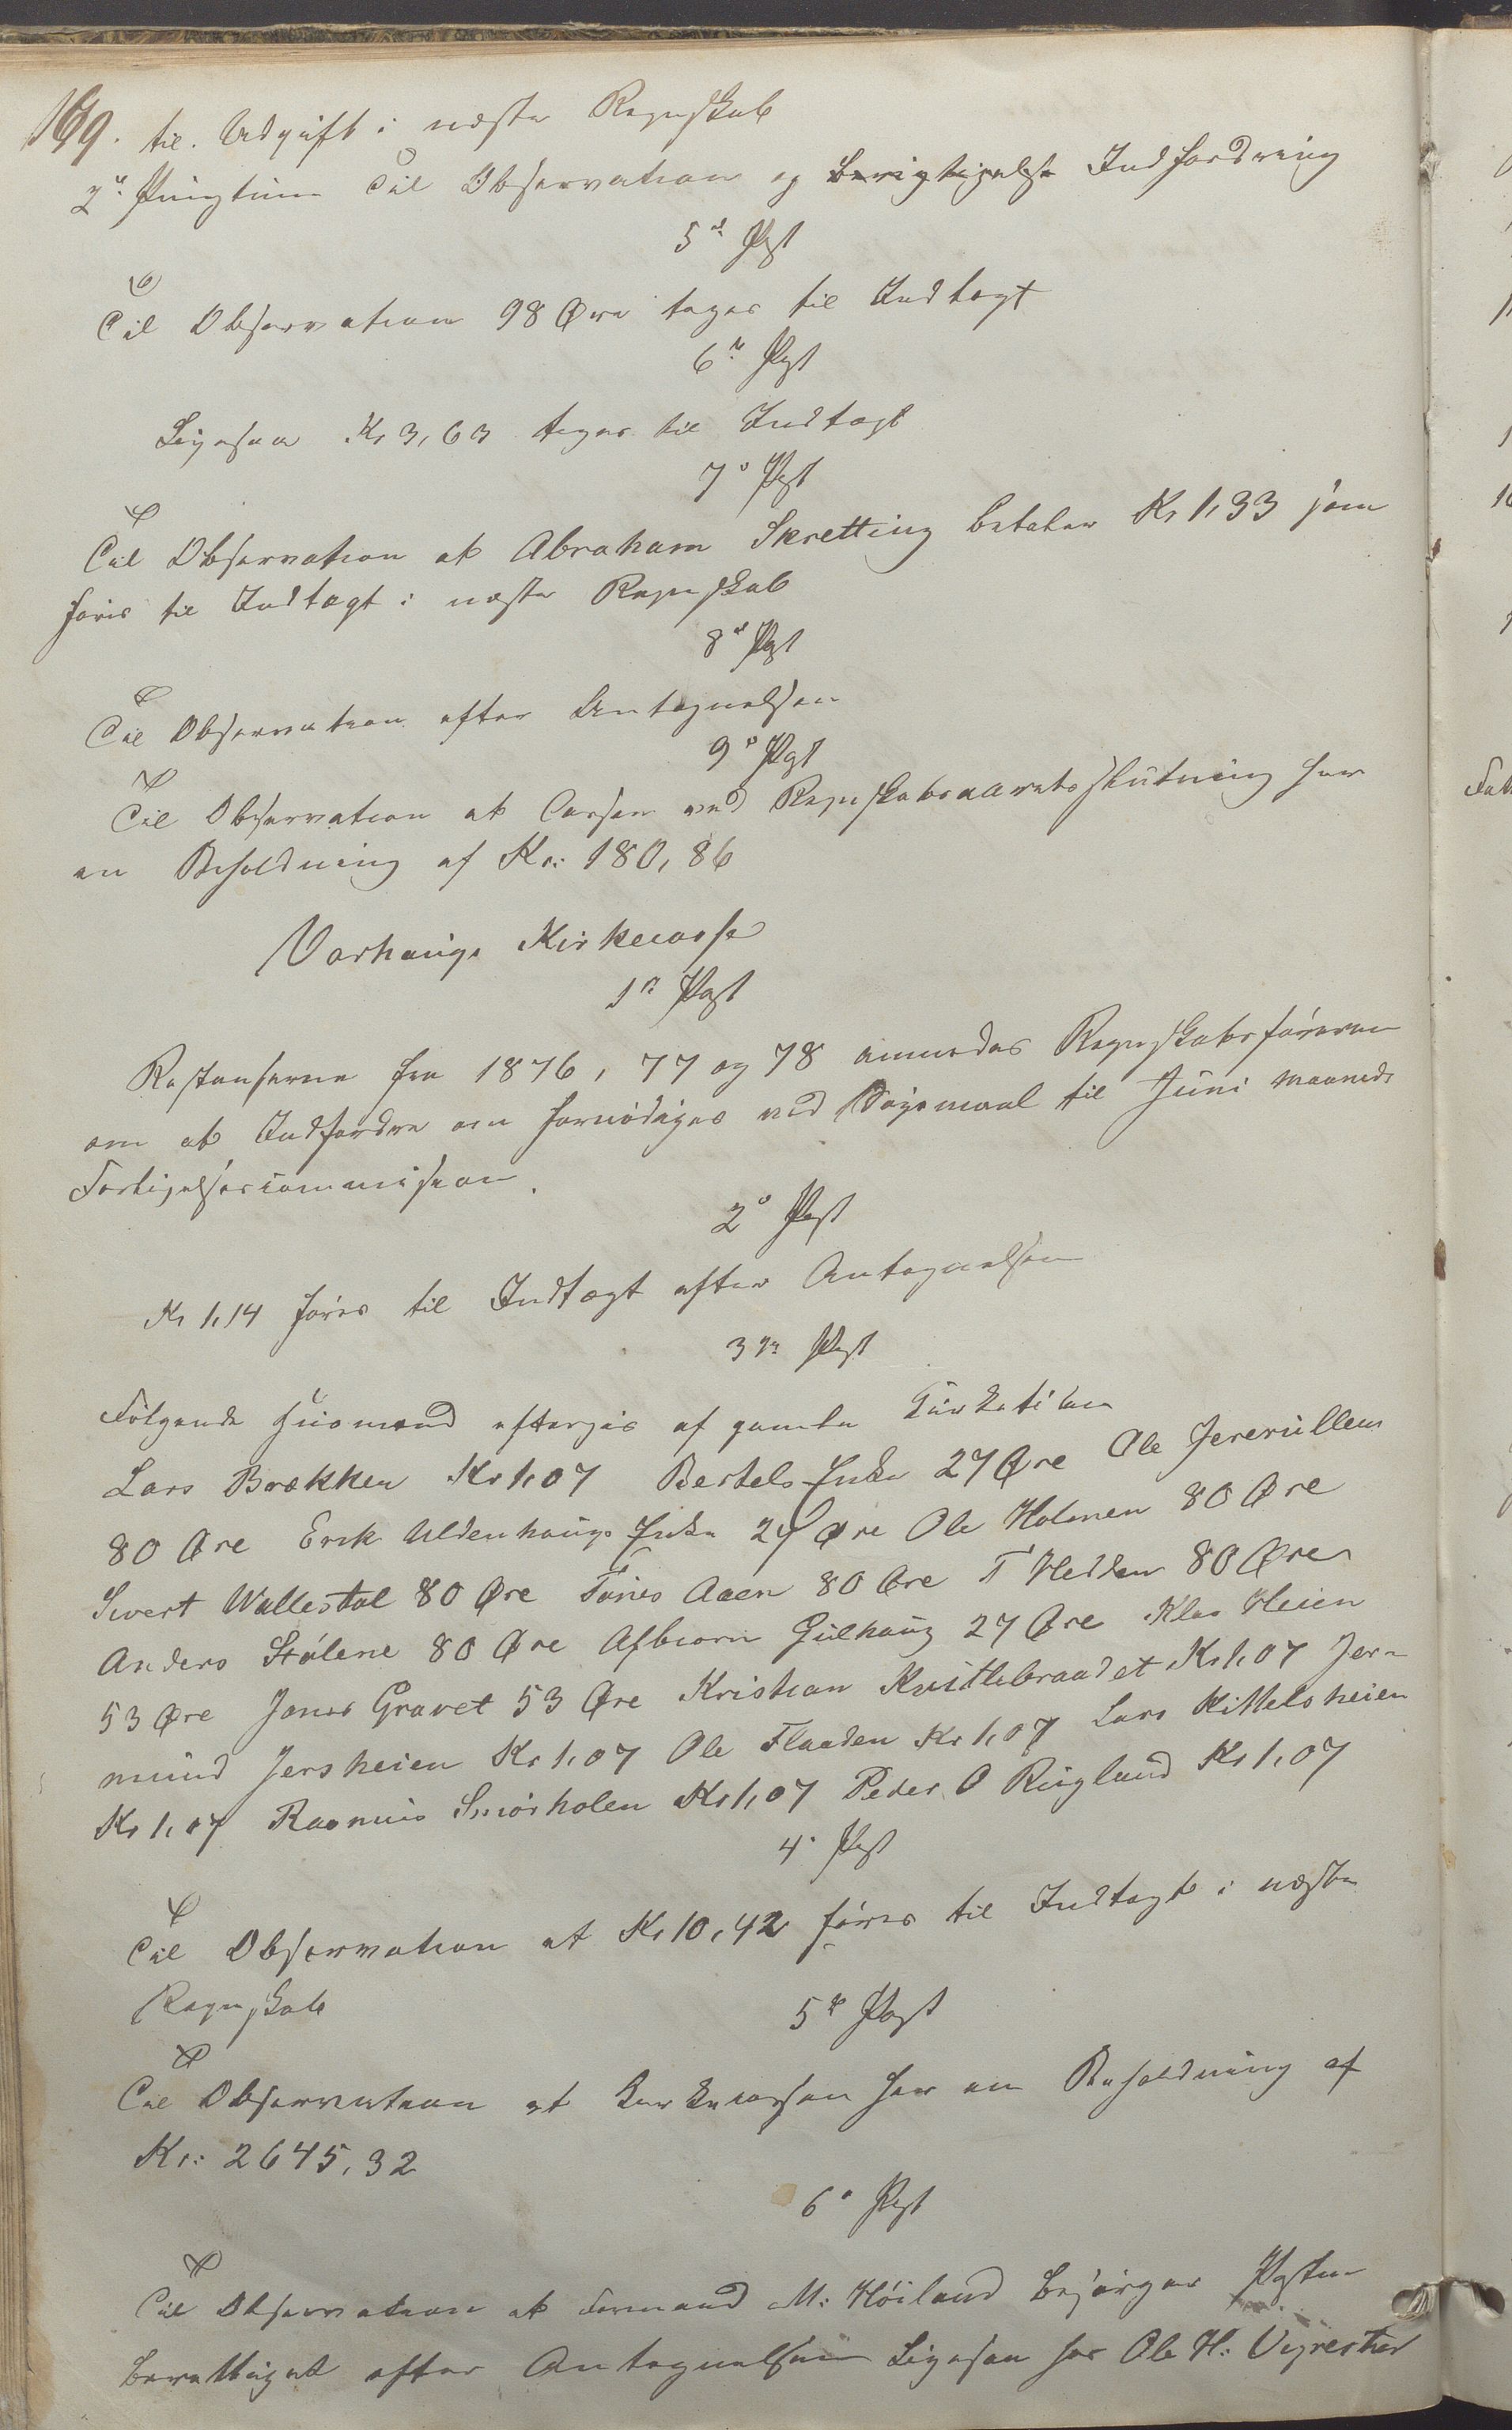 169. til Udgift i næste Regnskab
2det Pungtum Til Observation og berigtigelse Indfordring
5te Post
Til Observation 98 Øre tages til Indtægt
6te Post
Ligesaa Kr 3,63 tages til Indtægt
7de Post
Til Observation at Abraham Skretting betaler Kr 1,33 som
føris til Indtægt i næste Regnskab
8de Post
Til Observation efter Antegnelsen
9de Post
Til Observation at Cassen ved Regnskabsaarets slutning har
en Beholdning af Kr: 180,86
Varhaugs Kirkecasse
1ste Post
Restanserne fra 1876, 77 og 78 anmodes Regnskabsføreren
om at Indfordre om fornødiges ved Søgsmaal til Juni Maaneds
Forligelsescommission.
2den Post
Kr 1,14 føres til Indtægt efter Antegnelsen
3die Post
Følgende Husmænd eftergis af gamle
Lars Brækken Kr 1,07 Bertels Enke 27 Øre Ole
80 Øre Erik Uldenhaugs Enke 27 Øre Ole Holmen 80 Øre
Sivert Wallestøl 80 Øre Tønes Aaen 80 Øre T Hedlen 80 Øre
Anders Stølene 80 Øre Asbiorn Gulhaug 27 Øre Klas Heien
53 Øre Jonas Gravet 53 Øre Kristian Kvitlebraadet Kr 1,07 Jer-
mund Jersheien Kr 1,07 Ole Flaaden Kr 1,07 Lars Kittelsheien
Kr 1,07 Rasmus Smørholen Kr 1,07 Peder O Ringland Kr 1,07
4de Post
Til Observation at Kr 10,42 føres til Indtægt i næste
Regnskab
5te Post
Til Observation at Kirkecassen har en Beholdning af
Kr: 2645,32
6te Post
Til Observation at Formand M: Høiland besørger Posten
berettiget efter Antegnelsen Ligesaa for Ole H: Vigrestad